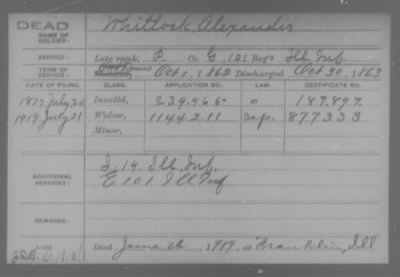 DEAD
NAME OF SOLDIER:
Whitlock Alexander
SERVICE:
Late rank, P. Co. G, 101 Reg't Ill Inf.
TERM OF SERVICE:
Enlisted Oct 1, 1862 Discharged Oct 20, 1863
DATE OF FILING. CLASS. APPLICATION NO. LAW. CERTIFICATE NO.
1877 July 20 Invalid, 239466 187,897.
1919 July 21 Widow, 1144211 877333
Minor,
ADDITIONAL SERVICES:
I. 14. Ill Inf.
E 101 Ill Inf
REMARKS:
Died June 26, 1919, at Franklin, Ill